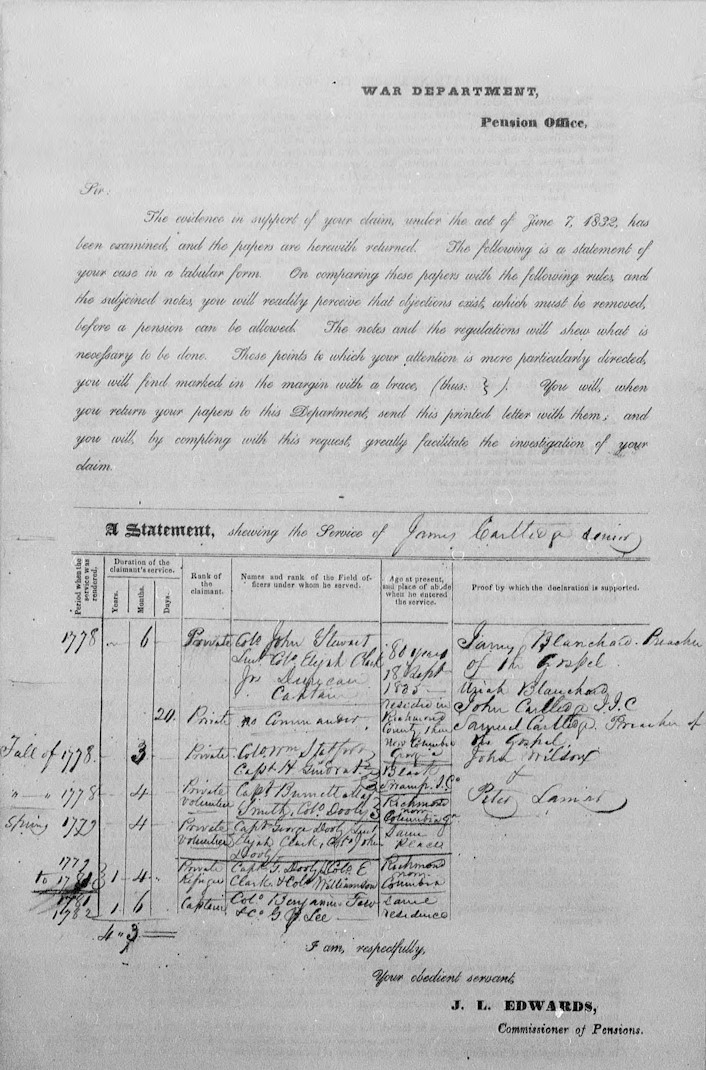 WAR DEPARTMENT,
Pension Office,
Sir:
The evidence in support of your claim, under the act of June 7, 1832, has
been examined, and the papers are herewith returned. The following is a statement of
your case in a tabular form. On comparing these papers with the following rules, and
the subjoined notes, you will readily perceive that objections exist, which must be removed,
before a pension can be allowed. The notes and the regulations will shew what is
necessary to be done. Those points to which your attention is more particularly directed,
you will find marked in the margin with a brace, (thus: }). You will, when
you return your papers to this Department, send this printed letter with them; and
you will, by complying with this request, greatly facilitate the investigation of your
claim.
A Statement, shewing the Service of James Cartledge Senior
Period when the service was rendered.
Duration of the claimant's service.
Years.
Months.
Days.
Rank of the claimant.
Names and rank of the Field officers under whom he served.
Age at present, and place of abode when he entered the service.
Proof by which the declaration is supported.
1778 6 Private Colo John Stewart
Lieut Colo Elijah Clark
Captain
80 years
18 Sept
1833
resided in
Richmond
County then
now Columbia
Georgia
James Blanchard Preacher
of the Gospel
Uriah Blanchard
John Cartledge J.I.C
Samuel Cartledge Preacher of
the Gospel
John Wilson
&
Peter Lamar
20 Private no Commander
Fall of 1778 3 Private Colo Wm
Capt H
Black
Swamp S.C.
" " 1778 4 Private Volunteer Capt Burnett
Smith, Colo Dooly
Richmond
now
Columbia Ga
Spring 1779 4 Private Volunteer Capt George Dooly Lieut
Elijah Clark, Colo John
Dooly
Same
Place
1779
to 1781 1 4 Private Refugee Capt G. Dooly Colo E
Clark & Colo Williamson
Richmond
now
Columbia
1781
1782 1 6 Captain Colo Benjamin Few
& Co G Lee
Same
residence
4 " 3
I am, respectfully,
Your obedient servant,
J. L. EDWARDS,
Commissioner of Pensions.